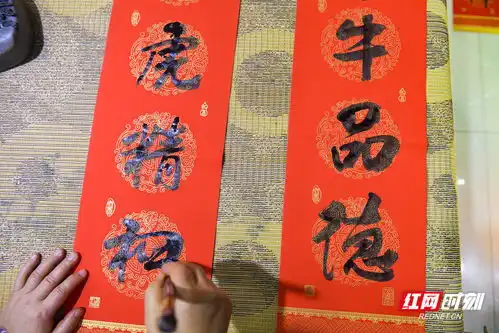 牛品德
虎精神
红网时刻
REDNET.CN